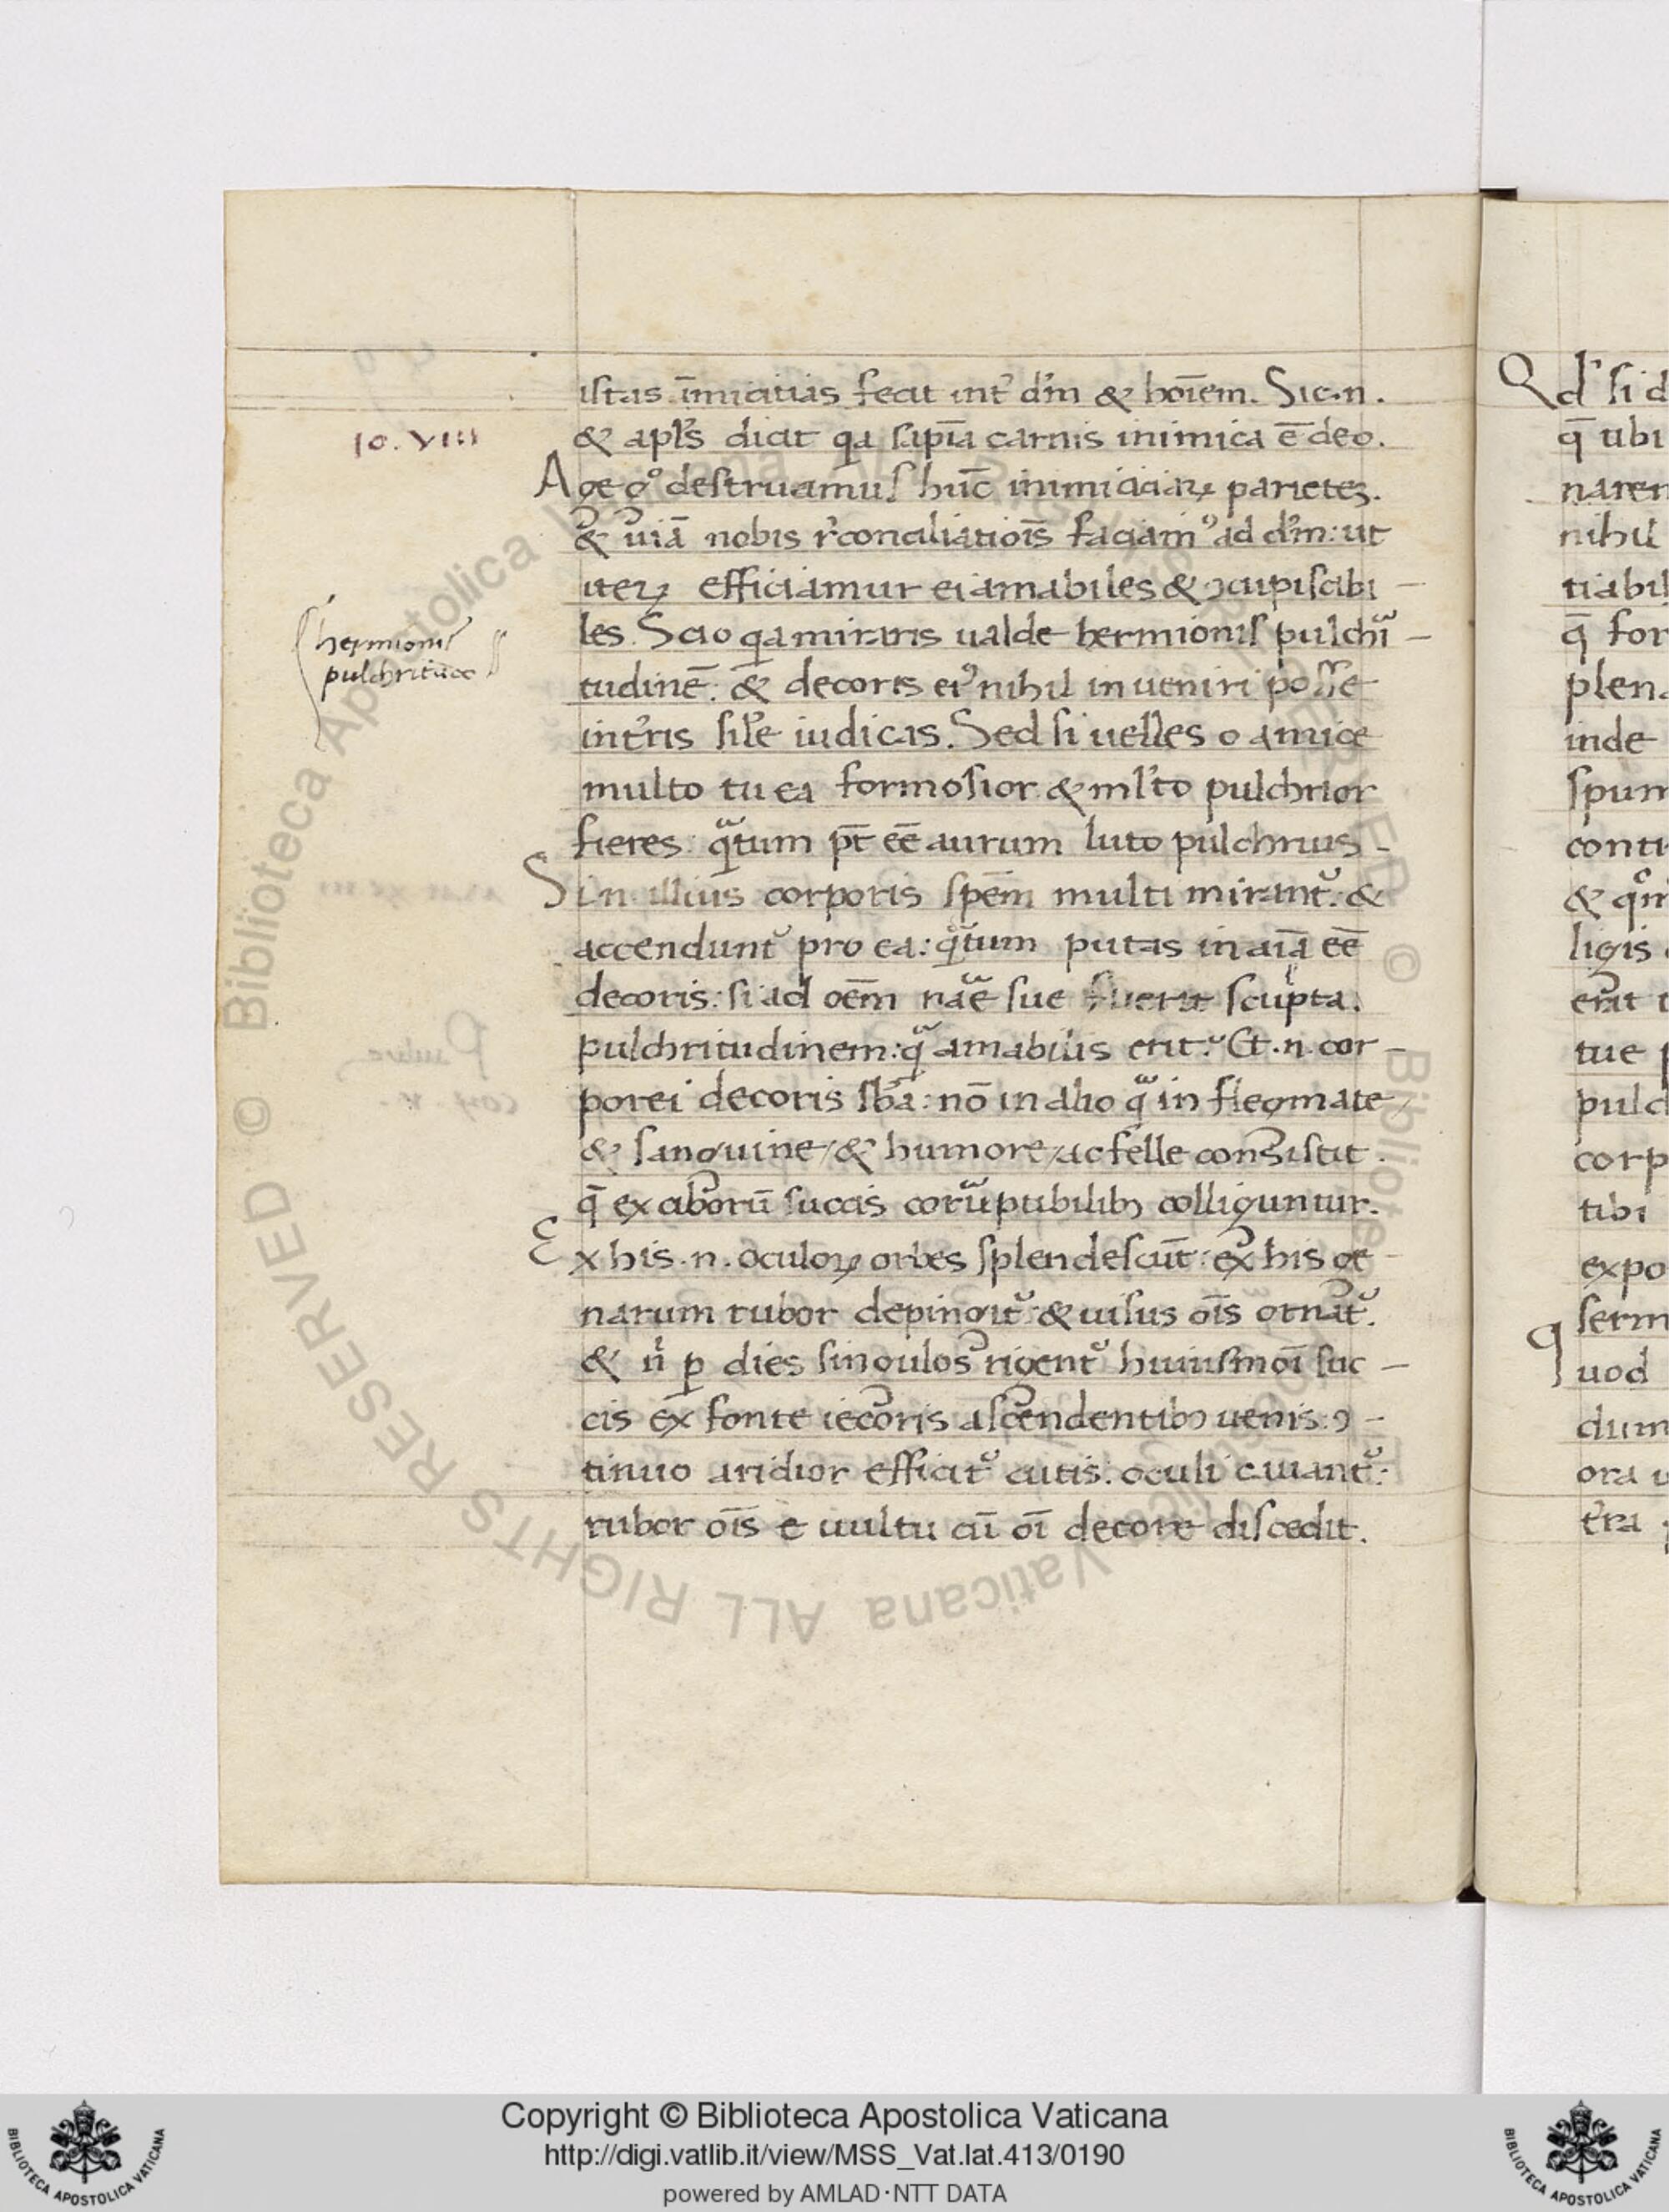 istas īmicitias fecit int᷒ dm̄ & hoīem. Sic .n.
& apl̄s dicit qa sapīa carnis inimica ē deo.
10. VIII
Age gͦ destruamus hūc inimiciciaꝝ parietez.
& uiā nobis r᷒conciliatiōis faciamꝰ ad dm̄: ut
iteꝝ efficiamur ei amabiles & ꝯcupiscibi-
les. Scio qa miraris ualde hermionis pulchͥ-
hermionis
pulchritudo
tudinē: & decoris eiꝰ nihil inueniri posse
int᷒ris sil̄e iudicas. Sed si uelles o amice
multo tu ea formosior & ml̄to pulchrior
fieres: qᷓtum pt̄ eē aurum luto pulchrius.
Si .n. illius corporis spēm multi mirant᷑: &
accendunt᷑ pro ea: qᷓtum putas in aīa eē
decoris: si ad oēm nāe sue fuerit sculpta
pulchritudinem: qᷓ amabilis erit? Et .n. cor-
porei decoris sb̄a: nō in alio qᷓ in flegmate
& sanguine / & humore / ac felle consistit.
q̄ ex ciborū succis corruptibilibꝫ colliguntur.
Ex his .n. oculoꝝ orbes splendescūt: ex his ge-
narum rubor depingit᷑: & uisus oīs ornat᷑.
& nͥ ꝑ dies singulos rigent᷑ huiusmōi suc-
cis ex fonte iecoris ascendentibꝫ uenis: ꝯ-
tinuo aridior efficit᷑ cutis: oculi cauant᷑:
rubor oīs e uultu cū oī decore discedit.
Qd si d
q̄ tibi
naren
nihil
tiabil
q̄ for
plena
inde
spum
conti
ligis
erat
tue p
pulc
corp
tibi
expo
serm
quod
dum
ora
© Biblioteca Apostolica Vaticana ALL RIGHTS RESERVED
Copyright © Biblioteca Apostolica Vaticana
http://digi.vatlib.it/view/MSS_Vat.lat.413/0190
powered by AMLAD·NTT DATA
BIBLIOTECA APOSTOLICA VATICANA
BIBLIOTECA APOSTOLICA VATICANA